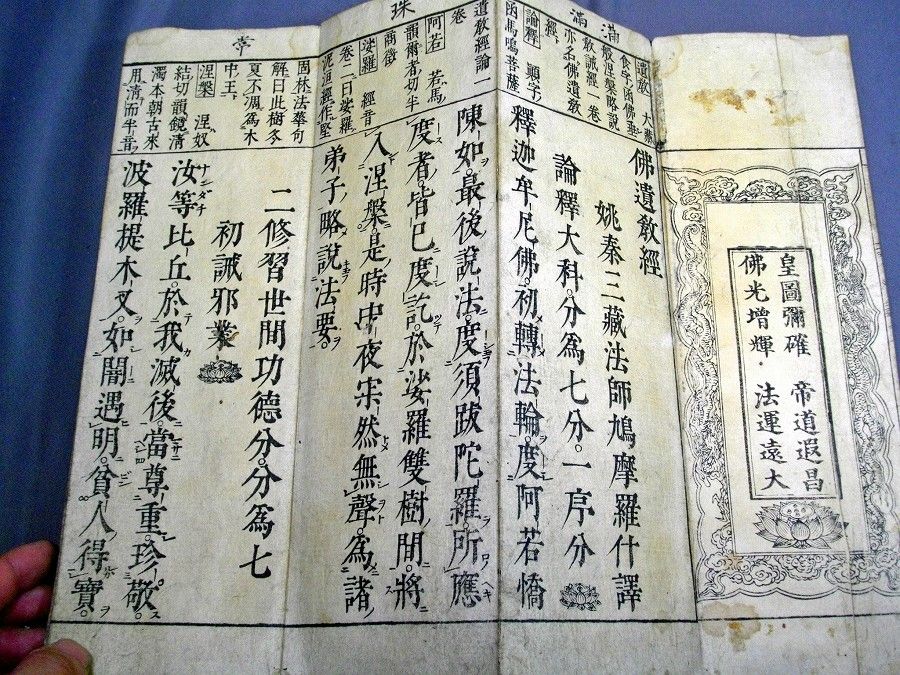 皇圖彌確 帝道遐昌
佛光增輝 法運遠大
滿
遺敎 大藏
食字函佛垂
般涅槃略說
敎誡經一卷
亦名佛遺敎
經
論釋 顯字
函馬鳴菩薩
珠
遺敎經論一
卷
阿若 若馬
韻爾者切半
商徵
娑羅 經音
卷二曰娑羅
泥洹經作堅
固林法華句
解曰此樹冬
夏不凋爲木
中王
涅槃 涅奴
結切韻鏡清
濁本朝古來
用清而半音
佛遺敎經
姚秦三藏法師鳩摩羅什譯
論釋大科。分爲七分。一序分
釋迦牟尼佛。初轉法輪。度阿若憍
陳如。最後說法。度須跋陀羅。所應
度者皆已度訖。於娑羅雙樹間。將
入涅槃。是時中夜寂然無聲。爲諸
弟子略說法要。
二修習世間功德分。分爲七
初誡邪業
汝等比丘。於我滅後。當尊重珍敬。
波羅提木叉。如闇遇明。貧人得寶。